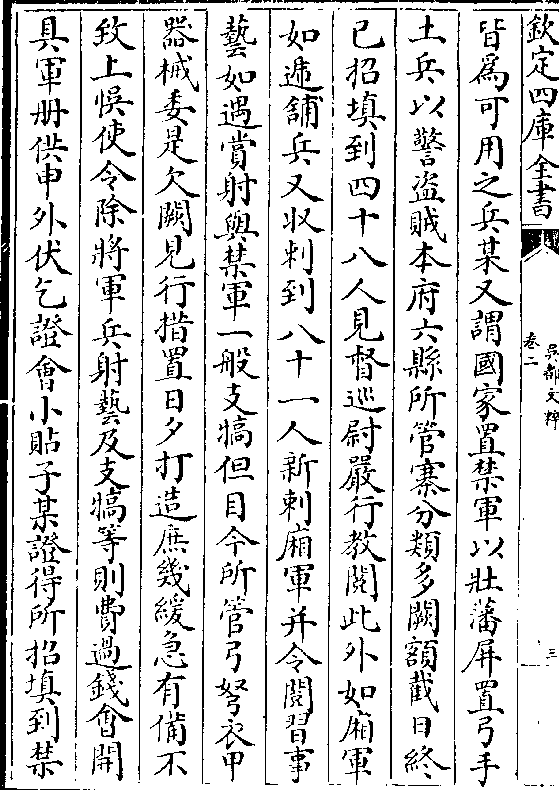 欽定四庫全書
吳都文粹
卷二
三
皆爲可用之兵某又謂國家置禁軍以壯藩屏置弓手
土兵以警盜賊本府六縣所管寨分類多闕額截日終
已招填到四十八人見督巡尉嚴行教閱此外如廂軍
如遞舖兵又收刺到八十一人新刺廂軍并令閱習事
藝如遇賞射與禁軍一般支犒但目今所管弓弩衣甲
器械委是欠闕見行措置日夕打造庶幾緩急有備不
致上悞使令除將軍兵射藝及支犒等則費過錢會開
具軍册供申外伏乞證會小貼子某證得所招填到禁